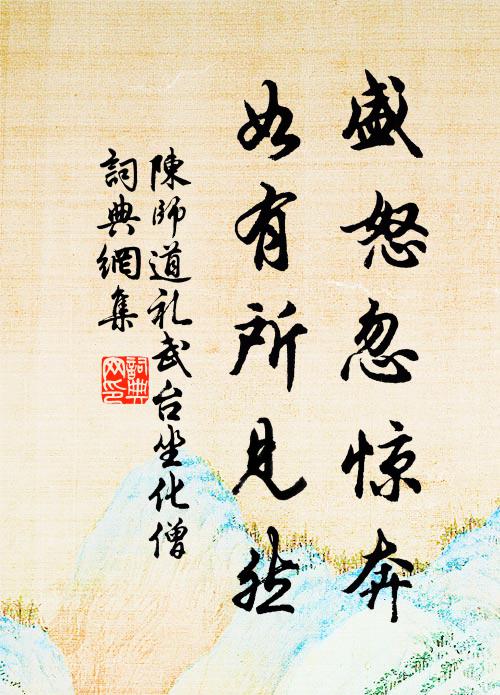 盛怒忽惊奔
如有所见然
陳師道礼武台坐化僧
詞典網集
詞典网印